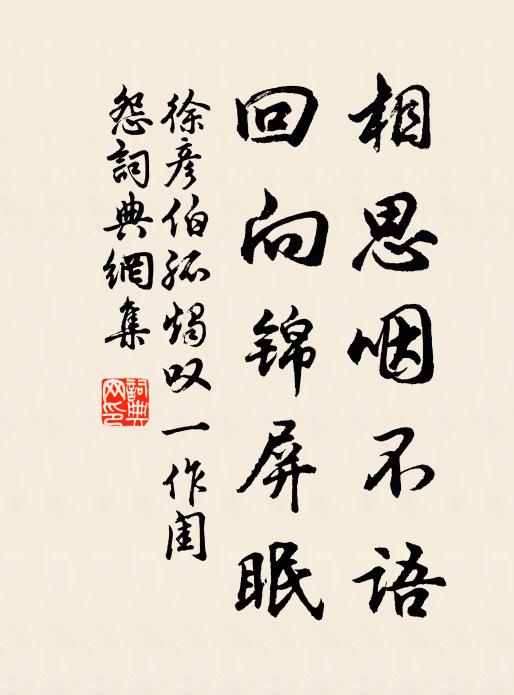 相思咽不语
回向锦屏眠
徐彦伯孤烛叹一作闺
怨詞典網集
詞典网印